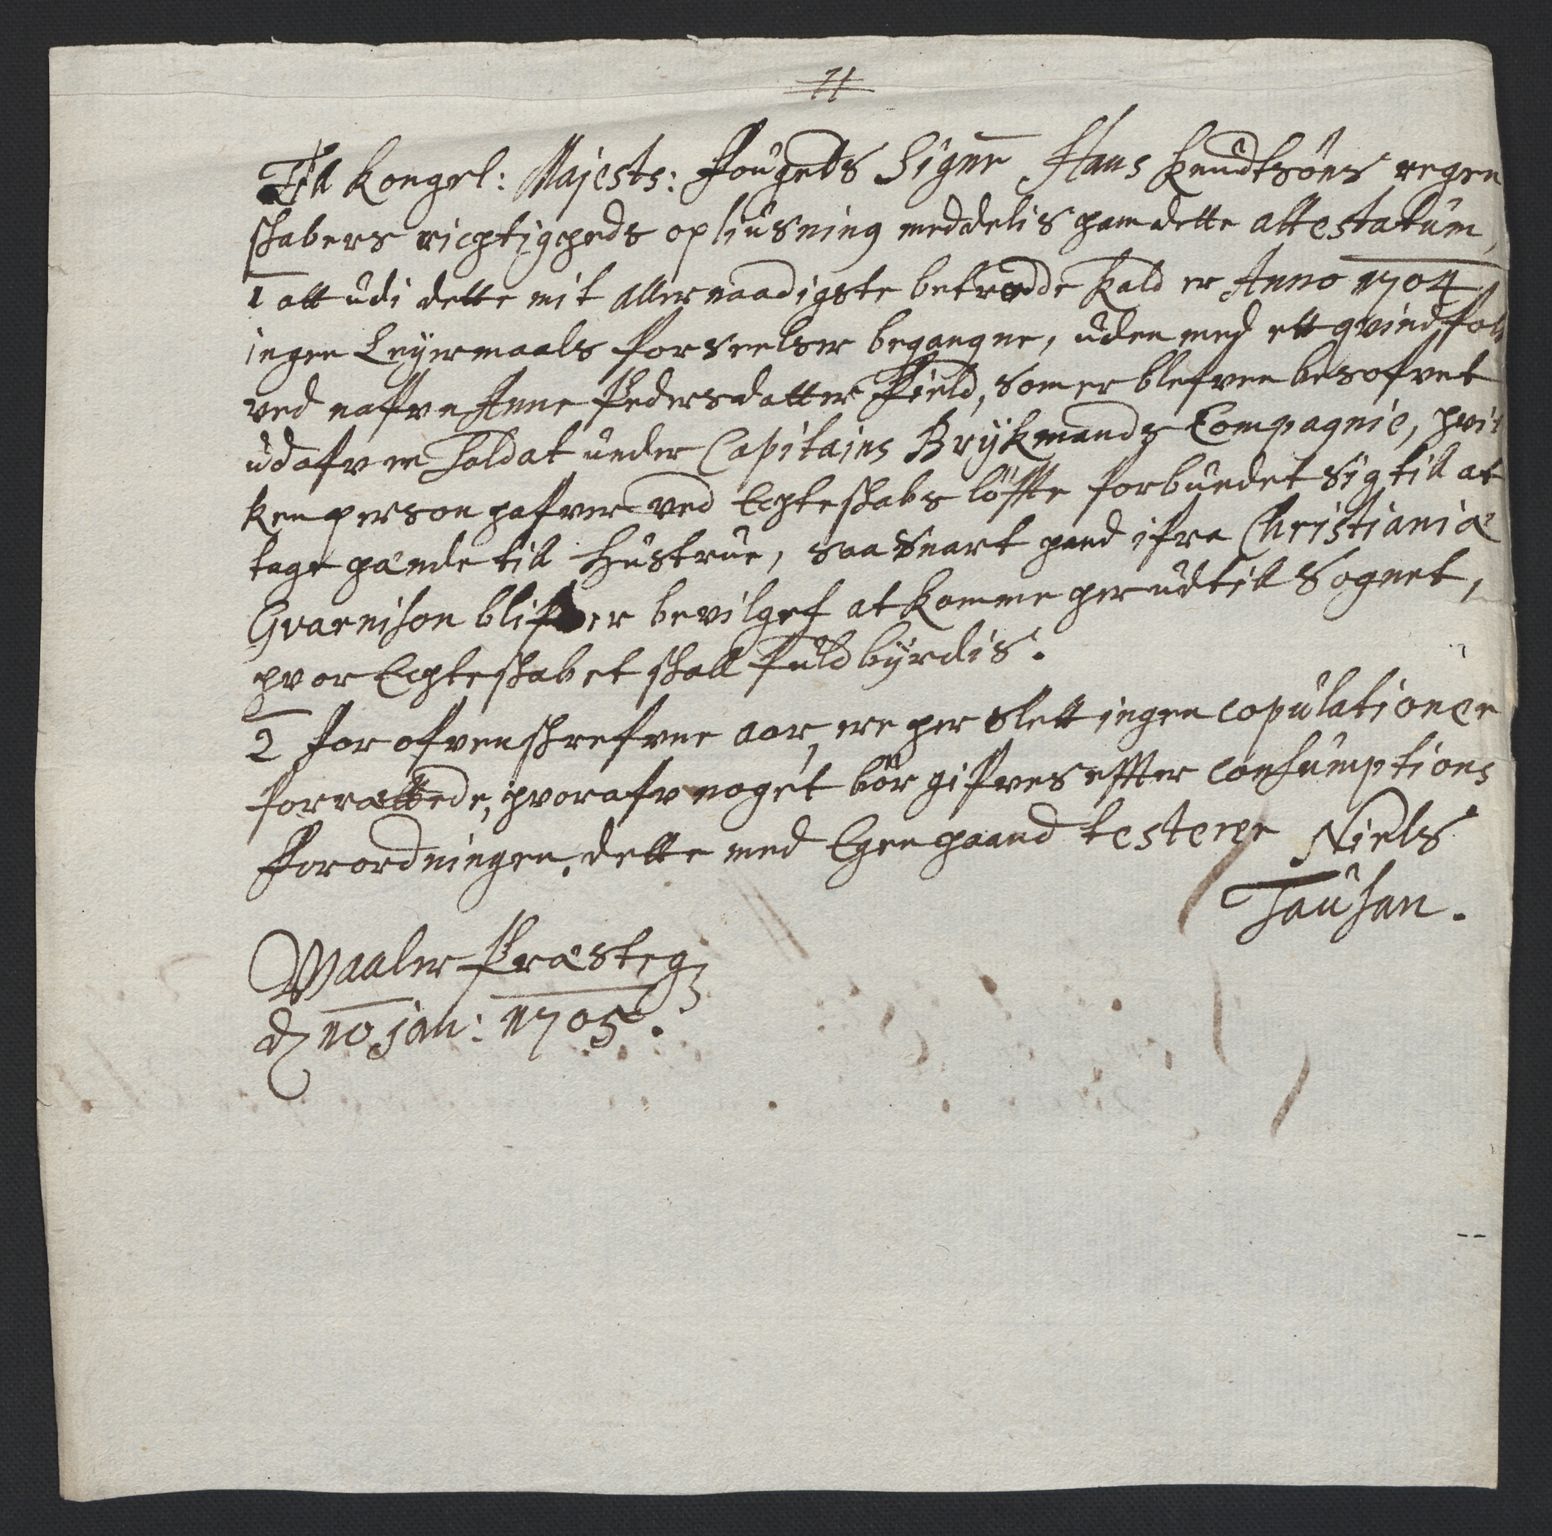 11
Till Kongel: Majests: Fougeds Signr Hans Knudtsøns regen
skabers richtigheds opliusning meddelis ham dette attestatum,
1 att udi dette mit allernaadigste betrodde Kald er Anno 1704
ingen Leyermaals forseelser begangne, uden med ett qvindfolk
ved nafvn Anne Pedersdatter Field, som er blefven besofvet
udafv en soldat under Capitains Brykmands Compagnie, hvil
ken person hafver ved Echteskabs løffte forbundet sig till at
tage hænde till Hustrue, saa snart hand ifra Christiania
Gvarnison blifver bevilget at komme her ud till Sognet,
hvor Echteskabet skall fuldbyrdis.
2 For ofvenskrefvne aar, ere her slett ingen copulationer
forrættede, hvorafv noget bør gifves effter consumptions
forordningen, dette med Egen haand testerer Niels
Tausan.
Waaler Præsteg
d 10 jan: 1705.